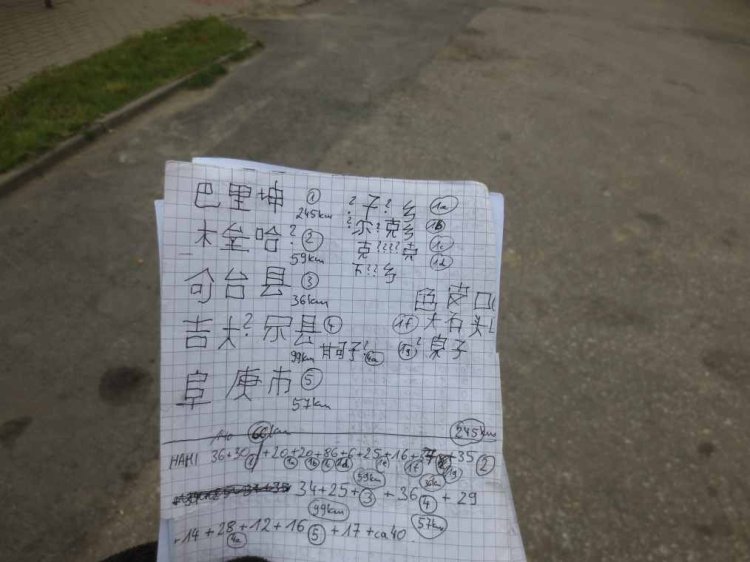 巴里坤 ① ? 子 ? 乡 1a
245km ? 尔 ? 克 乡 1b
木垒哈? ② 克 ???? 克 1c
59km 下 ?? 乡 1d
奇台县 ③
36km 色皮口
吉木?尔县 ④ 1f 大石头
99km 甘河子? 4a 1g ? 泉子
阜康市 ⑤
57km
140 66km 245km
HAMI 36+30 +20+20+86+6+25+16+ +35 ②
1a 1b 1c 1d 1e 1f 1g
59km 36km
34+25+ ③ +36 ④ +29
99km 57km
+14+28+12+16 ⑤ +17+ca40
4a